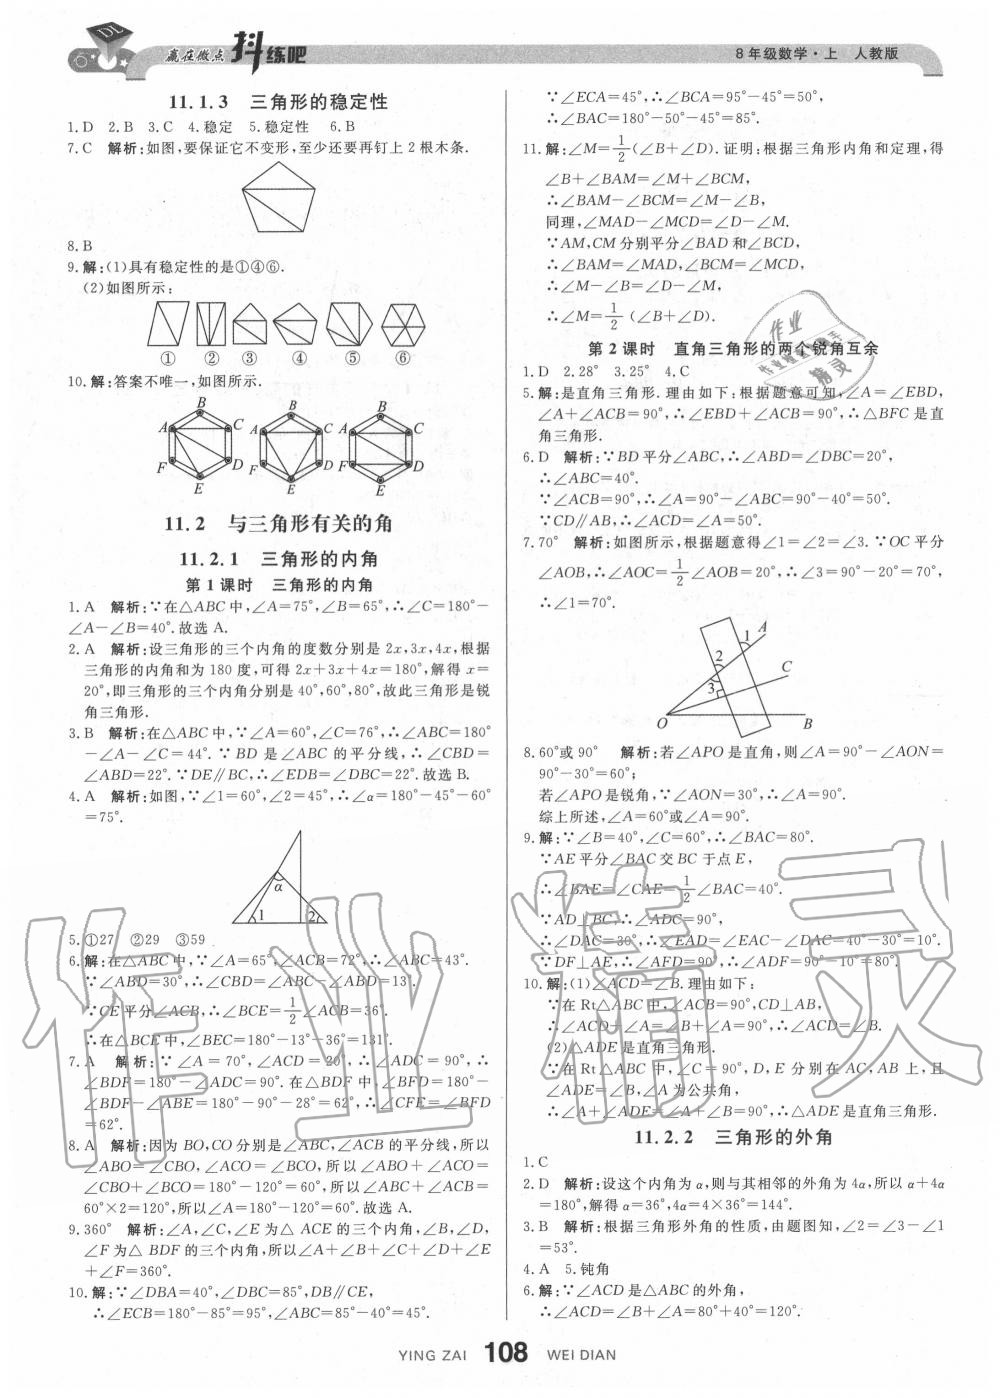 DL
赢在微点 抖练吧
8年级数学·上 人教版
11.1.3 三角形的稳定性
1.D 2.B 3.C 4.稳定 5.稳定性 6.B
7.C 解析:如图,要保证它不变形,至少还要再钉上2根木条.
8.B
9.解:(1)具有稳定性的是①④⑥.
(2)如图所示:
① ② ③ ④ ⑤ ⑥
10.解:答案不唯一,如图所示.
B B B
A C A C A C
F D F D F D
E E E
11.2 与三角形有关的角
11.2.1 三角形的内角
第1课时 三角形的内角
1.A 解析:∵在△ABC中,∠A=75°,∠B=65°,∴∠C=180°-
∠A-∠B=40°.故选A.
2.A 解析:设三角形的三个内角的度数分别是2x,3x,4x,根据
三角形的内角和为180度,可得2x+3x+4x=180°,解得x=
20°,即三角形的三个内角分别是40°,60°,80°,故此三角形是锐
角三角形.
3.B 解析:在△ABC中,∵∠A=60°,∠C=76°,∴∠ABC=180°
-∠A-∠C=44°.∵BD是∠ABC的平分线,∴∠CBD=
∠ABD=22°.∵DE∥BC,∴∠EDB=∠DBC=22°.故选B.
4.A 解析:如图,∵∠1=60°,∠2=45°,∴∠α=180°-45°-60°
=75°.
α
1 2
5.①27 ②29 ③59
6.解:在△ABC中,∵∠A=65°,∠ACB=72°,∴∠ABC=43°.
∵∠ABD=30°,∴∠CBD=∠ABC-∠ABD=13°.
∵CE平分∠ACB,∴∠BCE=1/2∠ACB=36°.
∴在△BCE中,∠BEC=180°-13°-36°=131°.
7.A 解析:∵∠A=70°,∠ACD=20°,∴∠ADC=90°,∴
∠BDF=180°-∠ADC=90°.在△BDF中,∠BFD=180°-
∠BDF-∠ABE=180°-90°-28°=62°,∴∠CFE=∠BFD
=62°.
8.A 解析:因为BO,CO分别是∠ABC,∠ACB的平分线,所以
∠ABO=∠CBO,∠ACO=∠BCO,所以∠ABO+∠ACO=
∠CBO+∠BCO=180°-120°=60°,所以∠ABC+∠ACB=
60°×2=120°,所以∠A=180°-120°=60°.故选A.
9.360° 解析:∠A,∠C,∠E为△ACE的三个内角,∠B,∠D,
∠F为△BDF的三个内角,所以∠A+∠B+∠C+∠D+∠E
+∠F=360°.
10.解:∵∠DBA=40°,∠DBC=85°,DB∥CE,
∴∠ECB=180°-85°=95°,∠ABC=85°-40°=45°.
∵∠ECA=45°,∴∠BCA=95°-45°=50°,
∴∠BAC=180°-50°-45°=85°.
11.解:∠M=1/2(∠B+∠D).证明:根据三角形内角和定理,得
∠B+∠BAM=∠M+∠BCM,
∴∠BAM-∠BCM=∠M-∠B,
同理,∠MAD-∠MCD=∠D-∠M.
∵AM,CM分别平分∠BAD和∠BCD,
∴∠BAM=∠MAD,∠BCM=∠MCD,
∴∠M-∠B=∠D-∠M,
∴∠M=1/2(∠B+∠D).
第2课时 直角三角形的两个锐角互余
1.D 2.28° 3.25° 4.C
5.解:是直角三角形.理由如下:根据题意可知,∠A=∠EBD,
∠A+∠ACB=90°,∴∠EBD+∠ACB=90°,∴△BFC是直
角三角形.
6.D 解析:∵BD平分∠ABC,∴∠ABD=∠DBC=20°,
∴∠ABC=40°.
∵∠ACB=90°,∴∠A=90°-∠ABC=90°-40°=50°.
∵CD∥AB,∴∠ACD=∠A=50°.
7.70° 解析:如图所示,根据题意得∠1=∠2=∠3.∵OC平分
∠AOB,∴∠AOC=1/2∠AOB=20°,∴∠3=90°-20°=70°,
∴∠1=70°.
1 A
2
3 C
O B
8.60°或90° 解析:若∠APO是直角,则∠A=90°-∠AON=
90°-30°=60°;
若∠APO是锐角,∵∠AON=30°,∴∠A=90°.
综上所述,∠A=60°或∠A=90°.
9.解:∵∠B=40°,∠C=60°,∴∠BAC=80°.
∵AE平分∠BAC交BC于点E,
∴∠BAE=∠CAE=1/2∠BAC=40°.
∵AD⊥BC,∴∠ADC=90°,
∴∠DAC=30°,∴∠EAD=∠EAC-∠DAC=40°-30°=10°.
∵DF⊥AE,∴∠AFD=90°,∴∠ADF=90°-10°=80°.
10.解:(1)∠ACD=∠B.理由如下:
∵在Rt△ABC中,∠ACB=90°,CD⊥AB,
∴∠ACD+∠A=∠B+∠A=90°,∴∠ACD=∠B.
(2)△ADE是直角三角形.
∵在Rt△ABC中,∠C=90°,D,E分别在AC,AB上,且
∠ADE=∠B,∠A为公共角,
∴∠A+∠ADE=∠A+∠B=90°,∴△ADE是直角三角形.
11.2.2 三角形的外角
1.C
2.D 解析:设这个内角为α,则与其相邻的外角为4α,所以α+4α
=180°,解得α=36°,4α=4×36°=144°.
3.B 解析:根据三角形外角的性质,由题图知,∠2=∠3-∠1
=53°.
4.A 5.钝角
6.解:∵∠ACD是△ABC的外角,
∴∠ACD=∠B+∠A=80°+40°=120°.
YING ZAI 108 WEI DIAN
作业精灵
作业
精灵